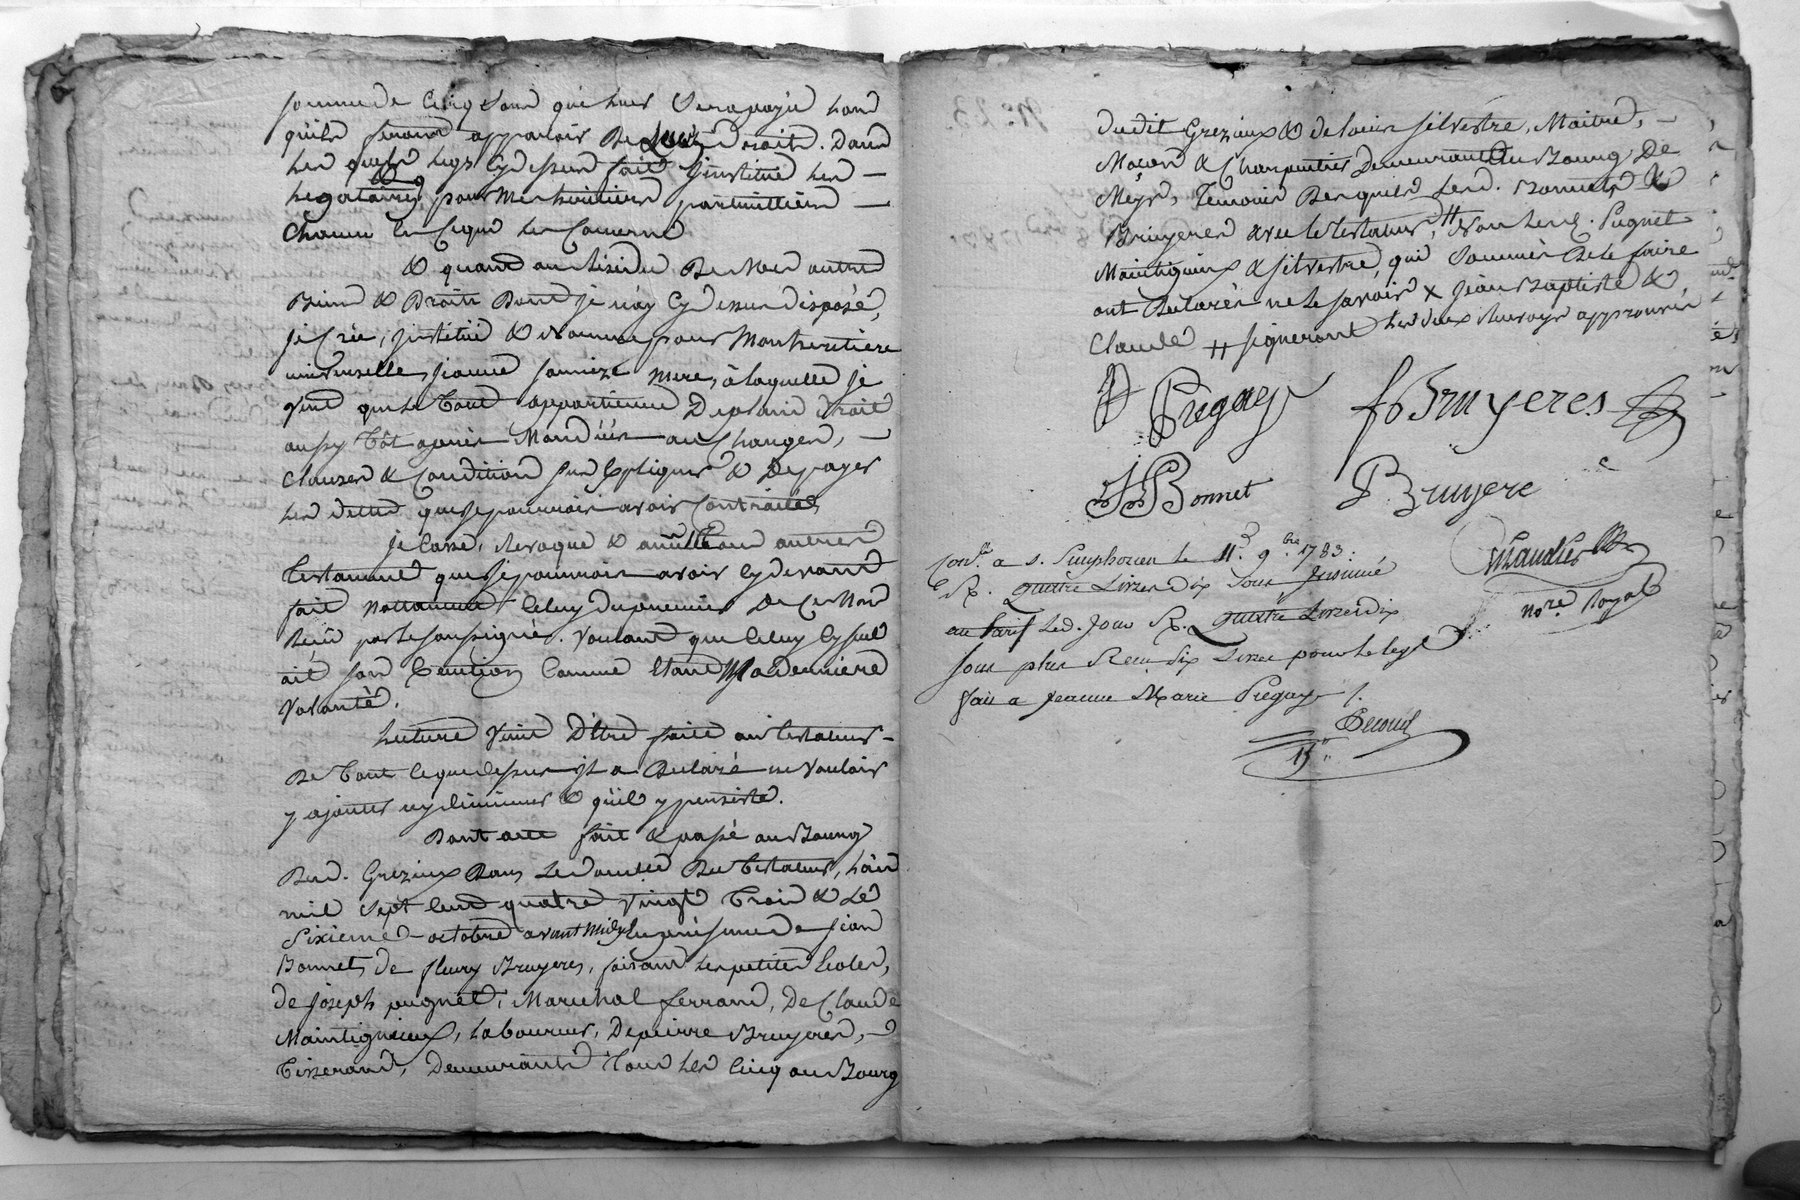 somme de cinq sous qui leur sera payé lors
qu'ils feront apparoir de leurs droits. Dans
les quels legs cy dessus fait j'institue les
legataires pour mes heritiers particulliers
chacun en ce qui les concerne
& quant au residu de mes autres
Biens & Droits Dont je n'ay cy dessus disposé,
je crée, institue & nomme pour mon heritiere
universelle, jeanne mere, à laquelle je
veux que le tout appartienne De plein droit
aussy tôt après mon décès aux charges,
clauses & conditions sus expliquées & De payer
les dettes que je pourrois avoir contractées
je casse, revoque & annulle tous autres
testaments que je pourrois avoir cy devant
fait nottament celuy du premier De ce mois
Reçu par le soussigné. voulant que celuy cy seul
ait son execution comme étant Ma Derniere
volonté.
Lecture vient D'être faite au testateur
De tout ce que dessus il a Declaré ne vouloir
y ajouter ny diminuer & qu'il y persiste.
Dont acte fait & passé au Bourg
Dud. Grezieux Dans le domicile Du testateur, L'an
mil sept cent quatre vingt trois & Le
sixieme octobre avant midy en presence de jean
Bonnet, de fleury Bruyeres, faisant les petites Ecoles,
de joseph pugnet, Marechal ferrand, De Claude
Maintigneux, laboureur, De pierre Bruyeres,
tisserand, Demeurants tous les cinq au Bourg
dudit Grezieux & de silvestre, Maitre,
Maçon & Charpentier Demeurant au Bourg De
Meys, Temoins Desquels Lesd. Bonnet &
Bruyeres avec le testateur, # Non lesd. Pugnet
Maintigneux & silvestre, qui sommés De le faire
ont Declarés ne le savoir x jean Baptiste &
Claude # signeront les deux Renvoys approuvés
Pregay fs Bruyeres
JB Bonnet P Bruyere
Con.lé a s. Simphorien le 11.e 9.bre 1783:
R. quatre Livres dix sous Insinué
au tarif Led. jour R. quatre Livres dix
sous plus Recu dix Livres pour le legs
fait a Jeanne Marie Pregay /.
no.re Royal
15"